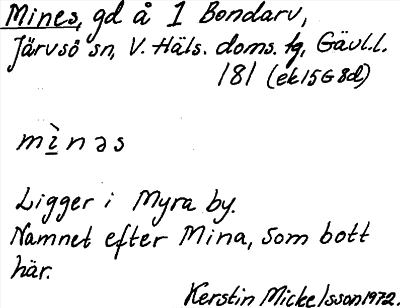 Mines, gd å 1 Bondarv,
Järvsö sn, V. Häls. doms. fg, Gävl.l.
181 (ek15G8d)
mı̀nəs
Ligger i Myra by.
Namnet efter Mina, som bott
här.
Kerstin Mickelsson 1972.